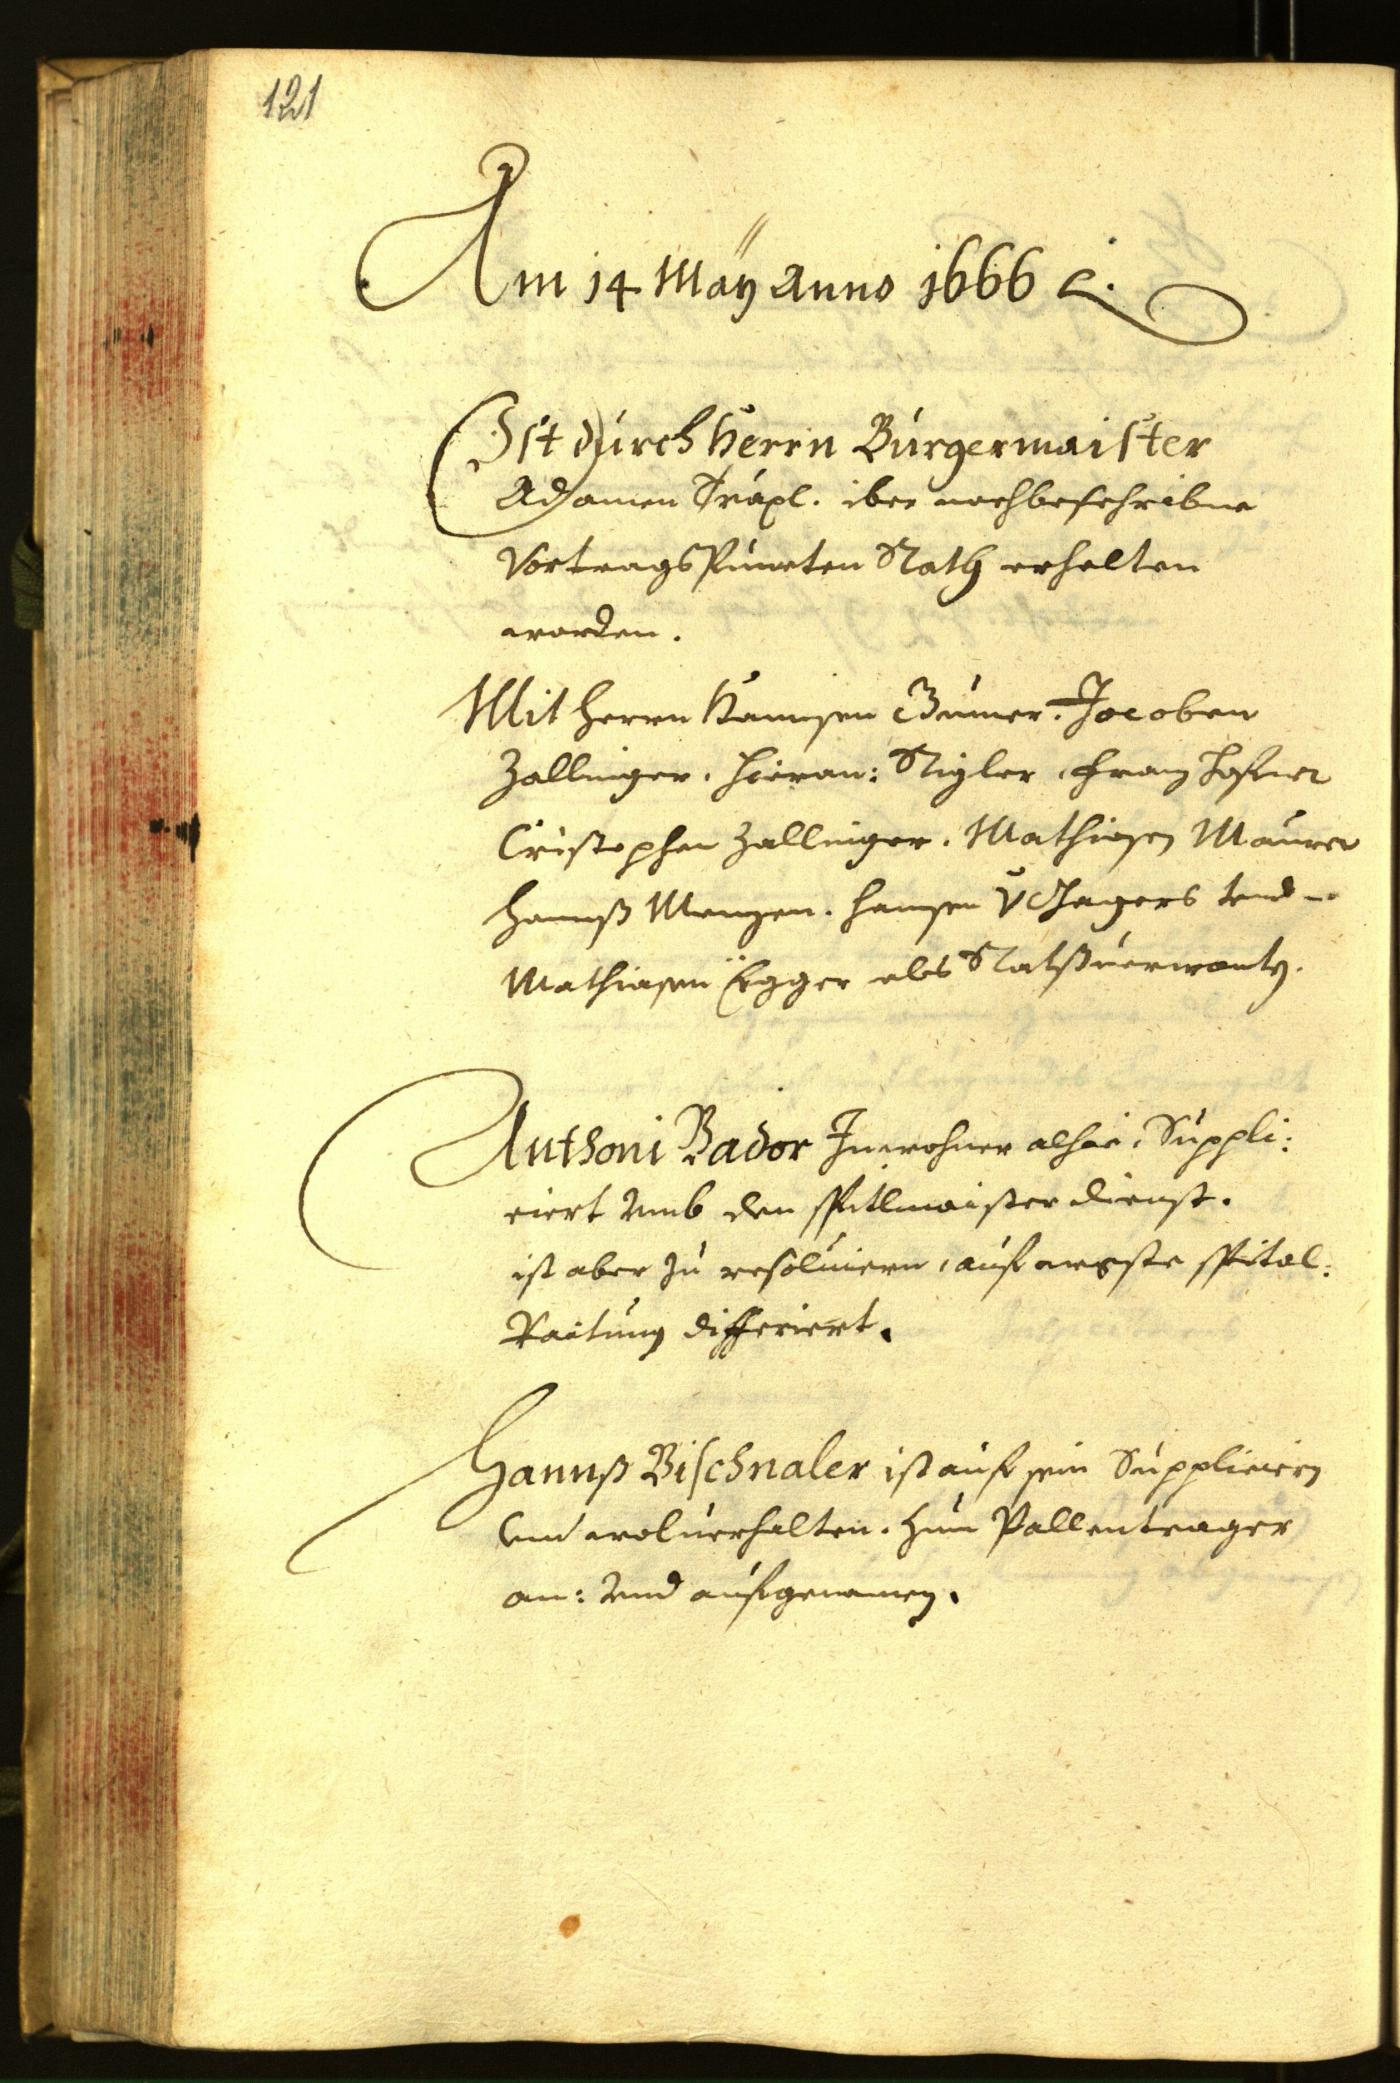 121
Am 14 Maÿ Anno 1666 e.
Ist durch Herrn Burgermaister
Adamen Träpl. iber nachbeschribne
Vortrags Puncten Rath erhalten
worden.
Mit Herrn Hannsen Jacoben
Zallinger. Hieran: Rigler, Franz Hofer
Cristophen Zallinger. Mathiasen Maurer
Hannß Menzen. Hansen vnd
Mathiasen Egger als Ratßuerwonte.
Anthoni Bador Inwohner alhie, Suppli:
ciert vmb den Spitlmaister dienst.
ist aber zu resoluiern, auf negste Spital:
Raitung differiert.
Hannß Bischnaler ist auf sein Supplicieren
vnd woluerhalten. zum Pallentrager
an: vnd aufgenomen.